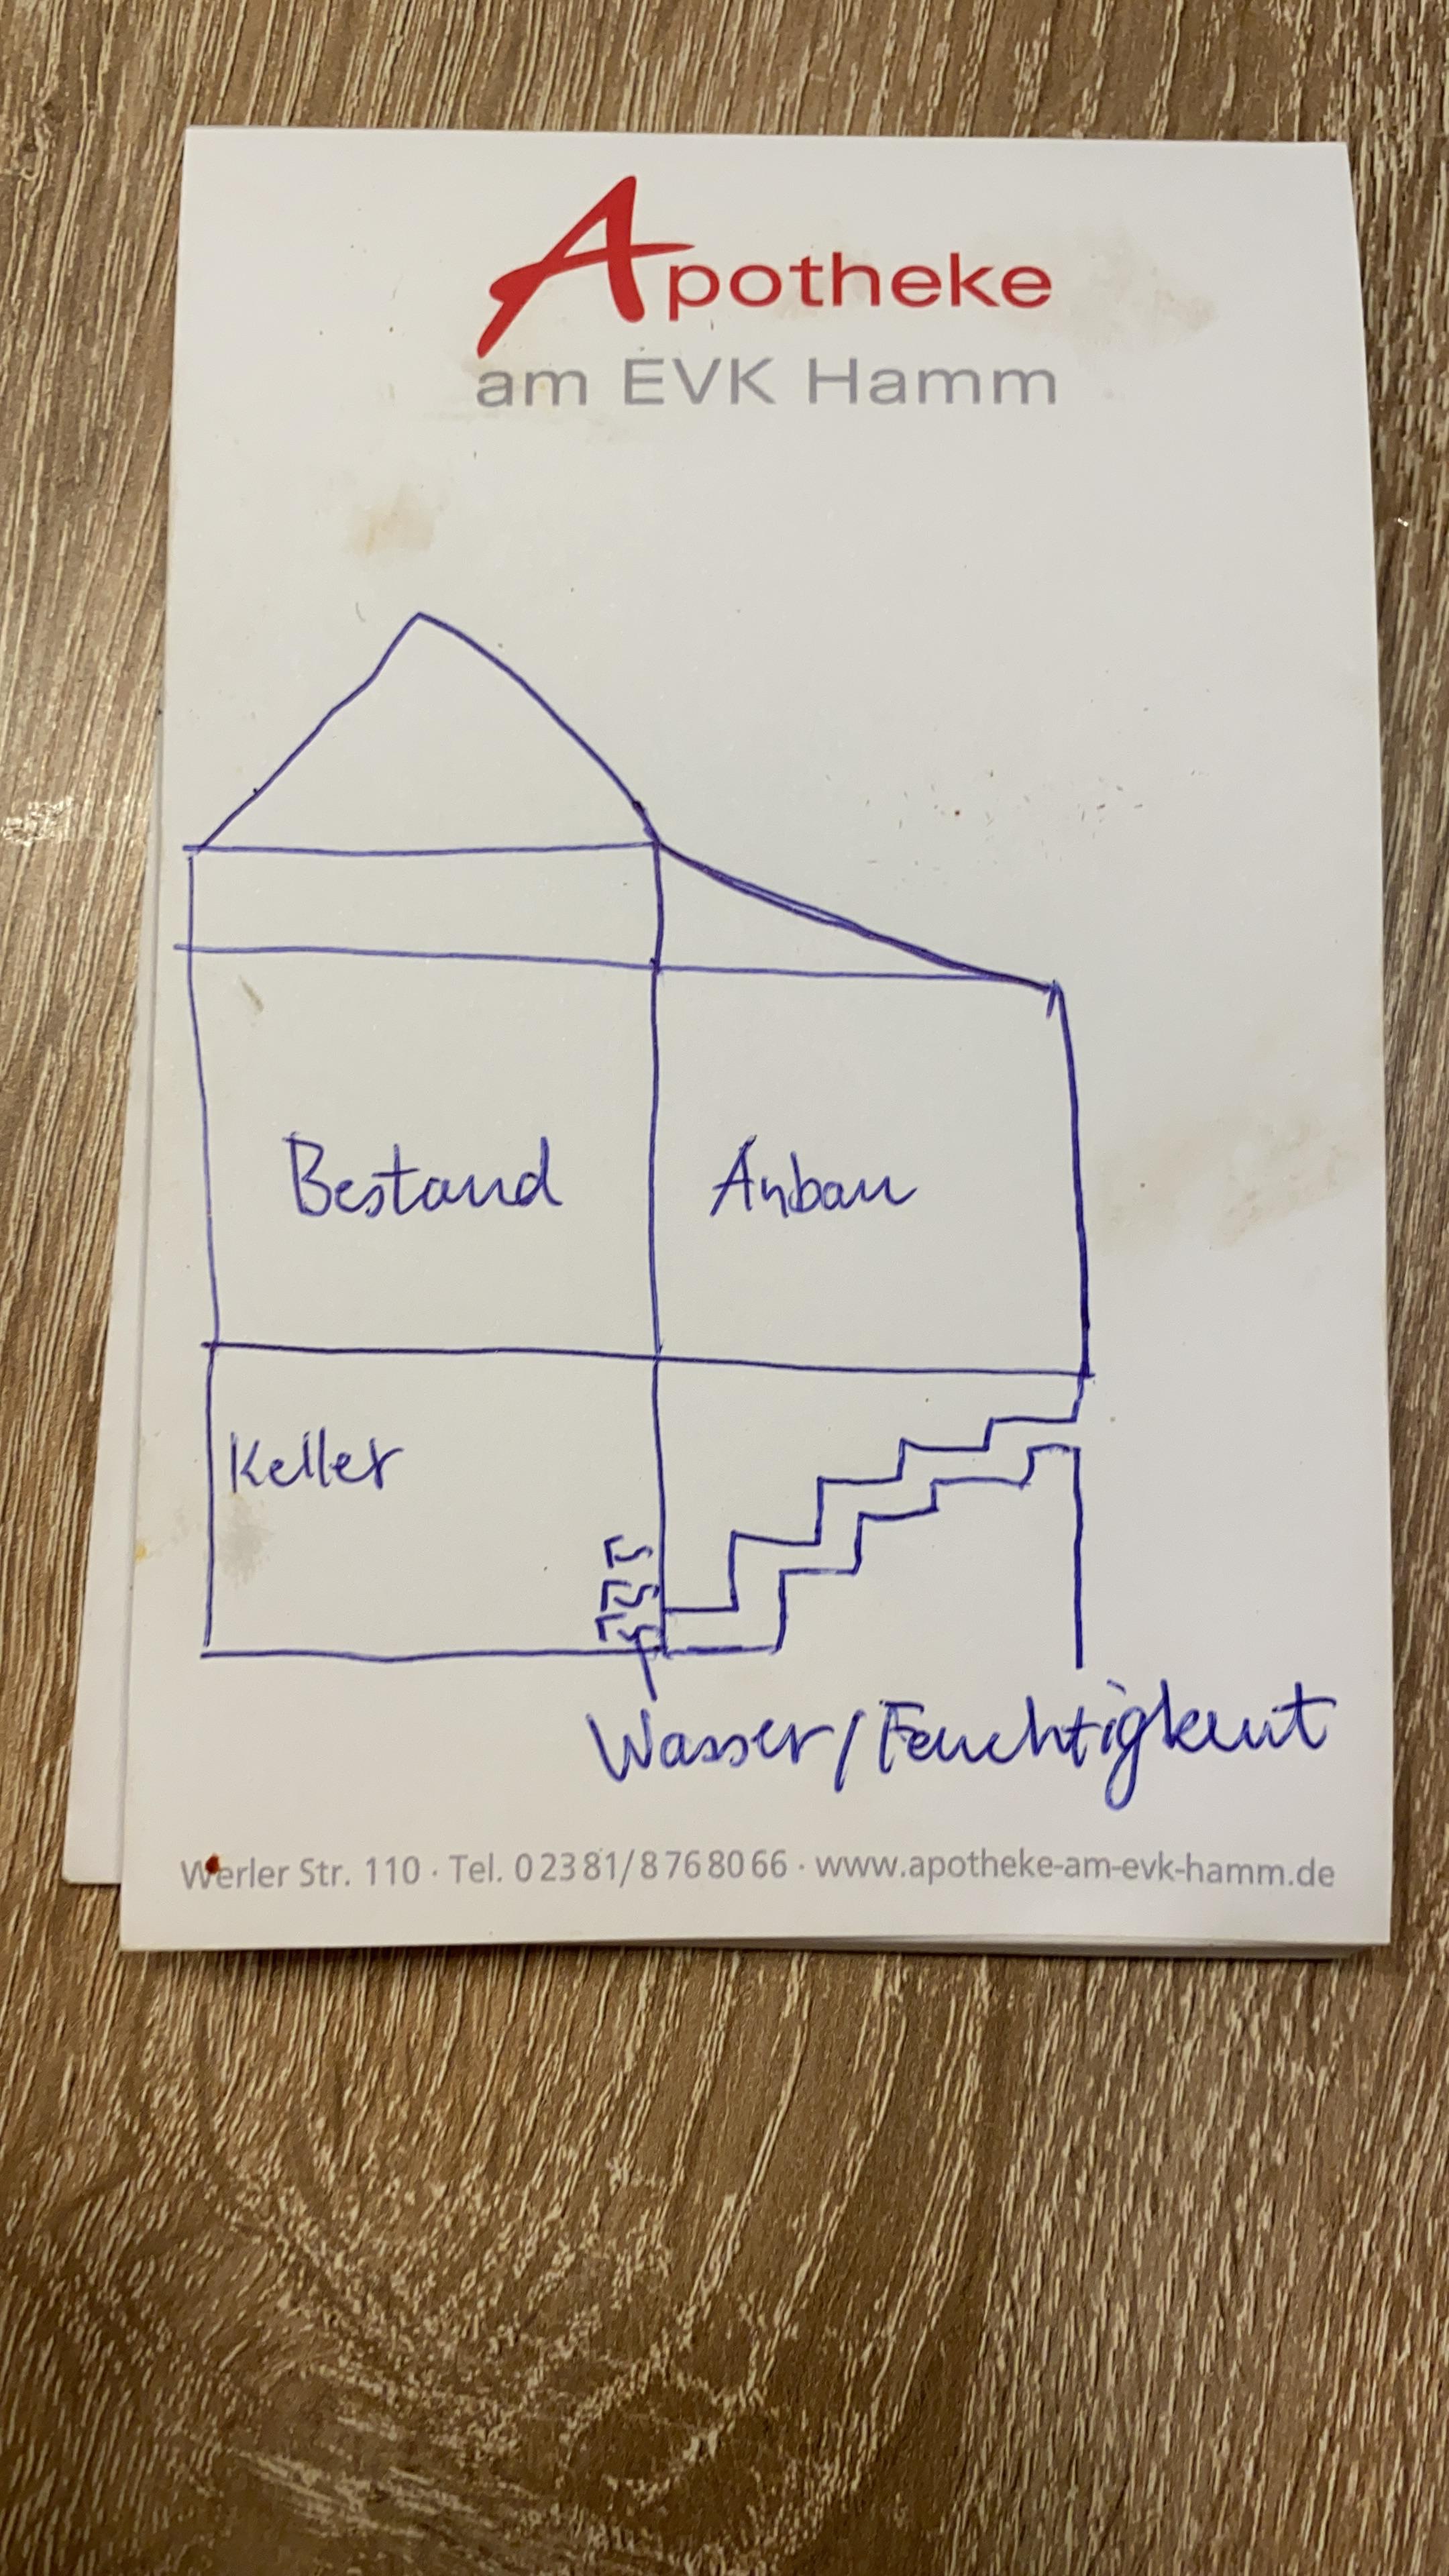 Apotheke
am EVK Hamm
Bestand
Anbau
Keller
Wasser/Feuchtigkeit
Werler Str. 110 · Tel. 02381/8768066 · www.apotheke-am-evk-hamm.de